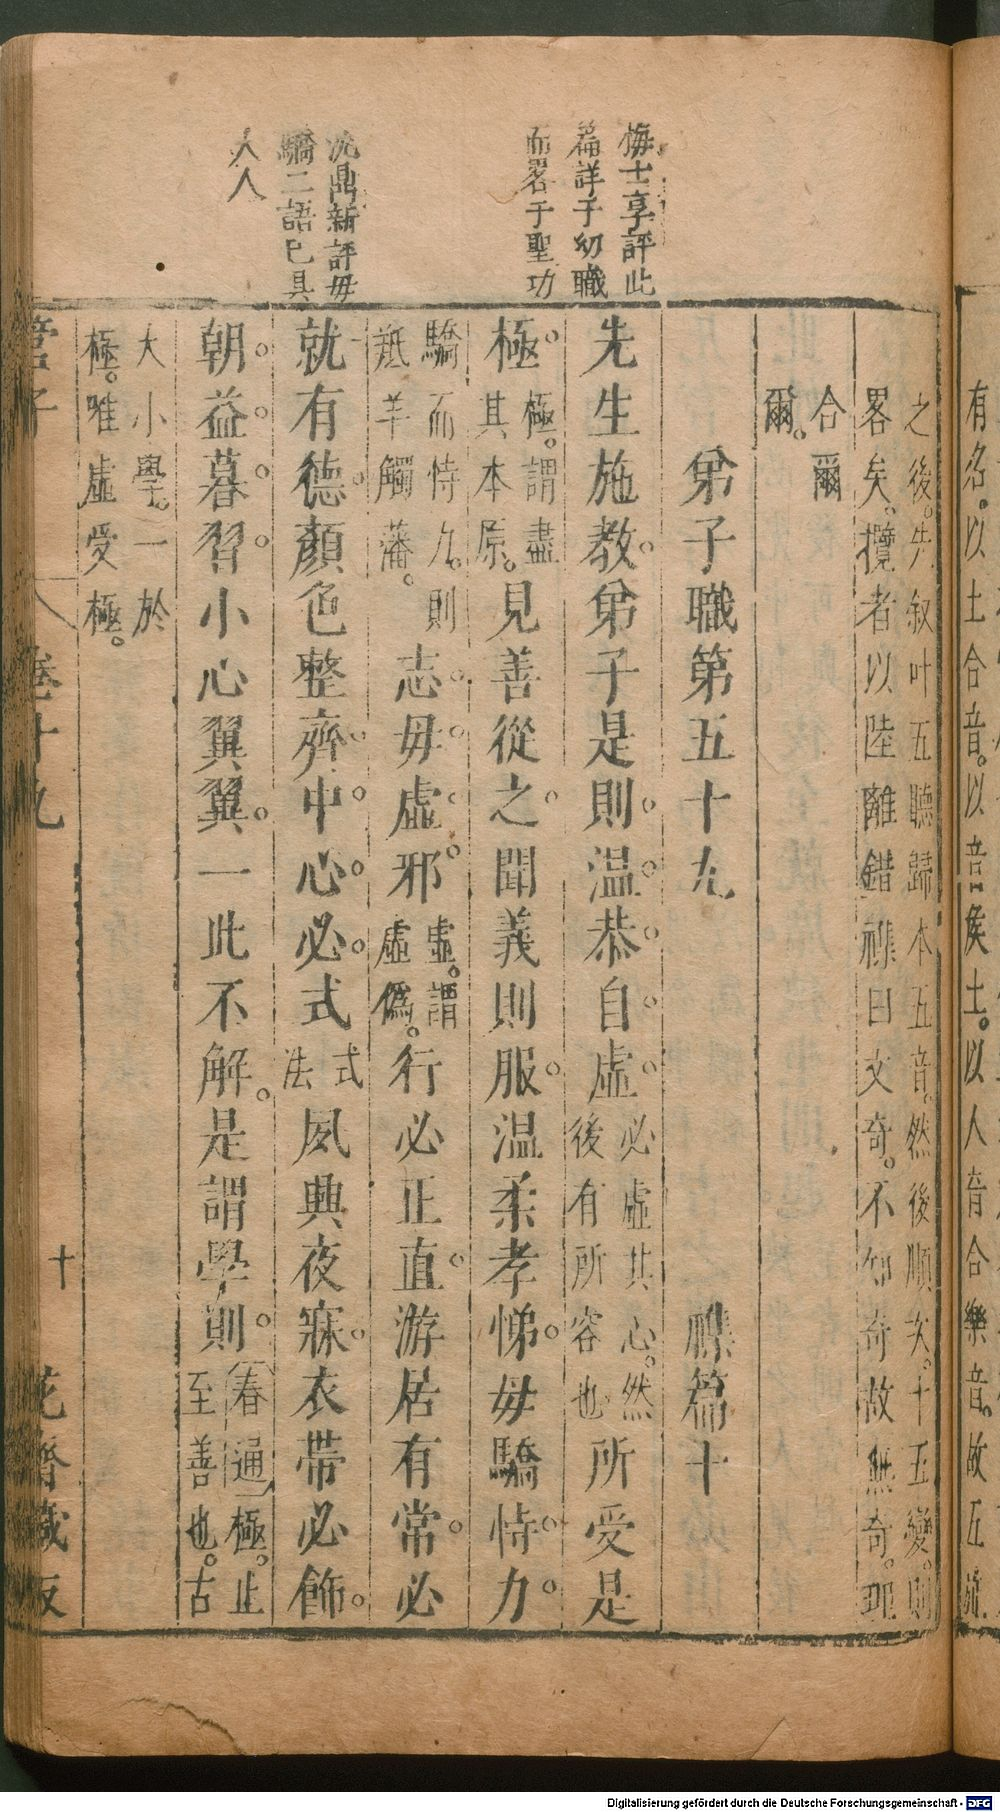 梅士享評此
篇詳于幼職
而畧于聖功
沈鼎新評毋
驕二語已具
大人
之後。先叙叶五聽歸本五音。然後順次。十五變。則
畧矣。攬者以陸離錯襍曰文奇。不知奇故無奇。理
合爾
爾。
弟子職第五十九 襍篇十
先生施教。弟子是則。温恭自虛必虛其心。然
後有所容也所受是
極。極。謂盡
其本原。見善從之。聞義則服。温柔孝悌。毋驕恃力。
驕而恃力。則
羝羊觸藩。志毋虛邪。虛。謂
虛偽。行必正直。游居有常。必
就有德。顏色整齊。中心必式式
法夙興夜寐。衣帶必飾。
朝益暮習。小心翼翼。一此不解。是謂學則。春通極。止
至善也。古
大小學。一於
極。唯虛受
極。
管子
卷十九
十
花齋藏板
有名。以土合音。以音侯土。以人音合樂音。故五施
Digitalisierung gefördert durch die Deutsche Forschungsgemeinschaft - DFG